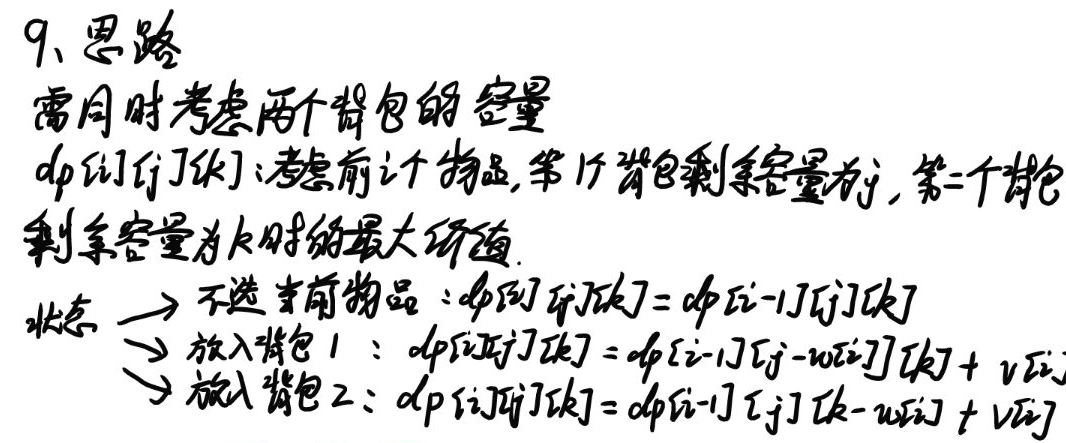 9、思路
需同时考虑两个背包的容量
dp[i][j][k]:考虑前i个物品,第1个背包剩余容量为j,第二个背包
剩余容量为k时的最大价值.
状态 → 不选当前物品:dp[i][j][k]=dp[i-1][j][k]
→ 放入背包1: dp[i][j][k]=dp[i-1][j-w[i]][k]+v[i]
→ 放入背包2: dp[i][j][k]=dp[i-1][j][k-w[i]+v[i]